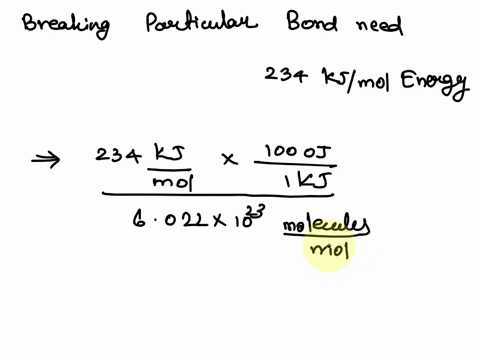 Breaking Particular Bond need
234 KJ/mol Energy
⇒ 234 KJ/mol × 1000J/1KJ
6.022 × 10²³ molecules/mol